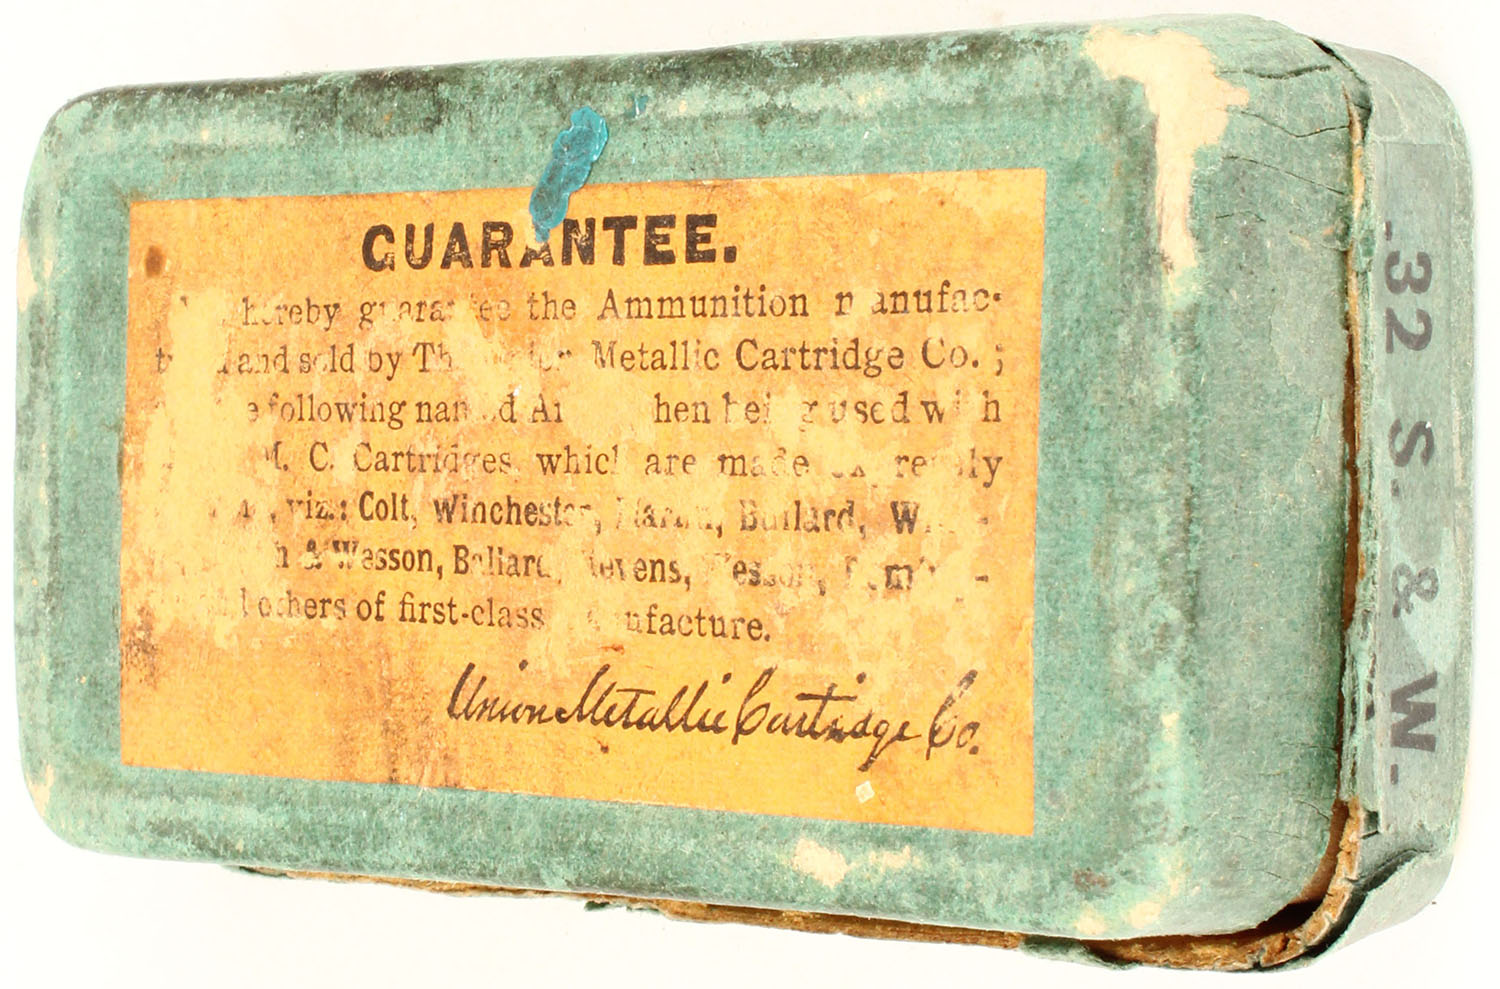 GUARANTEE.
hereby guarantee the Ammunition manufac-
and sold by Metallic Cartridge Co.;
following named used with
M. C. Cartridges, which are made
viz.: Colt, Winchester, Marlin, Bullard,
& Wesson, Ballard, Stevens, Wesson,
others of first-class manufacture.
Union Metallic Cartridge Co.
.32 S. & W.